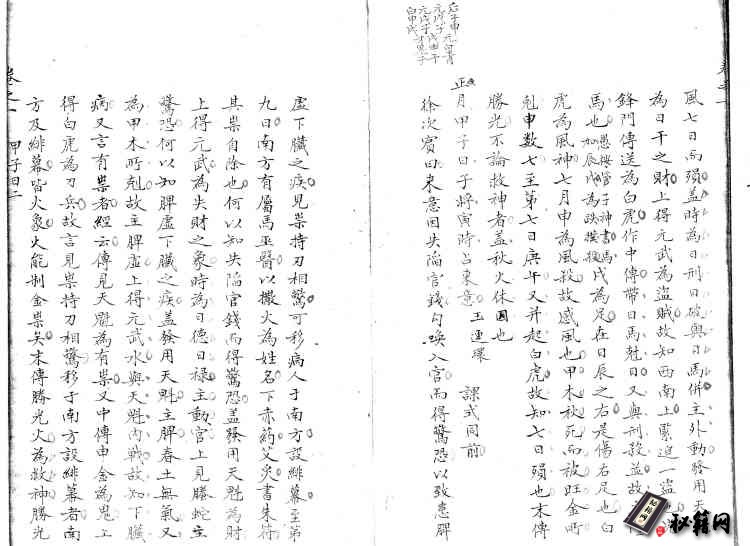 風七日而殞蓋時為日刑日破與日馬併主外動發用天
為日干之財上得元武為盜賊故知西南上緊迫一盜
鋒門傳送為白虎作中傳帶日馬尅日又與刑殺益故
馬也戌為足在日辰之右是傷右足也白
虎為風神七月申為風殺故感風也甲木秋死而被旺金所
尅申数七至第七日庚午又并起白虎故知七日殞也末傳
勝光不論救神者蓋秋火休囚也
王連環
正月甲子日子將寅時占來意 課式同前
徐次賓曰來意因失陷官錢勾喚入宫而得驚恐以致患脾
虛下臟之疾見祟持刀相驚可移病人于南方設緋幕至第
九日南方有屬馬巫醫以撒火為姓名下赤药艾炙書朱符
其祟自除也何以知失陷官錢而得驚恐蓋發用天魁為財
上得元武為失財之象時為日德日祿主動官上見螣蛇主
驚恐何以知脾虛下臟之疾蓋發用天魁主脾春土無氣又
為甲木所剋故主脾虛上得元武水與天魁內戰故知下臟
病又言有祟者經云傳見天罡為有祟又中傳申金為鬼上
得白虎為刀兵故言見祟持刀相驚移于南方設緋幕者南
方及緋幕皆火象火能制金祟矣末傳勝光火為救神勝光
卷之一 甲子四二
秘籍网